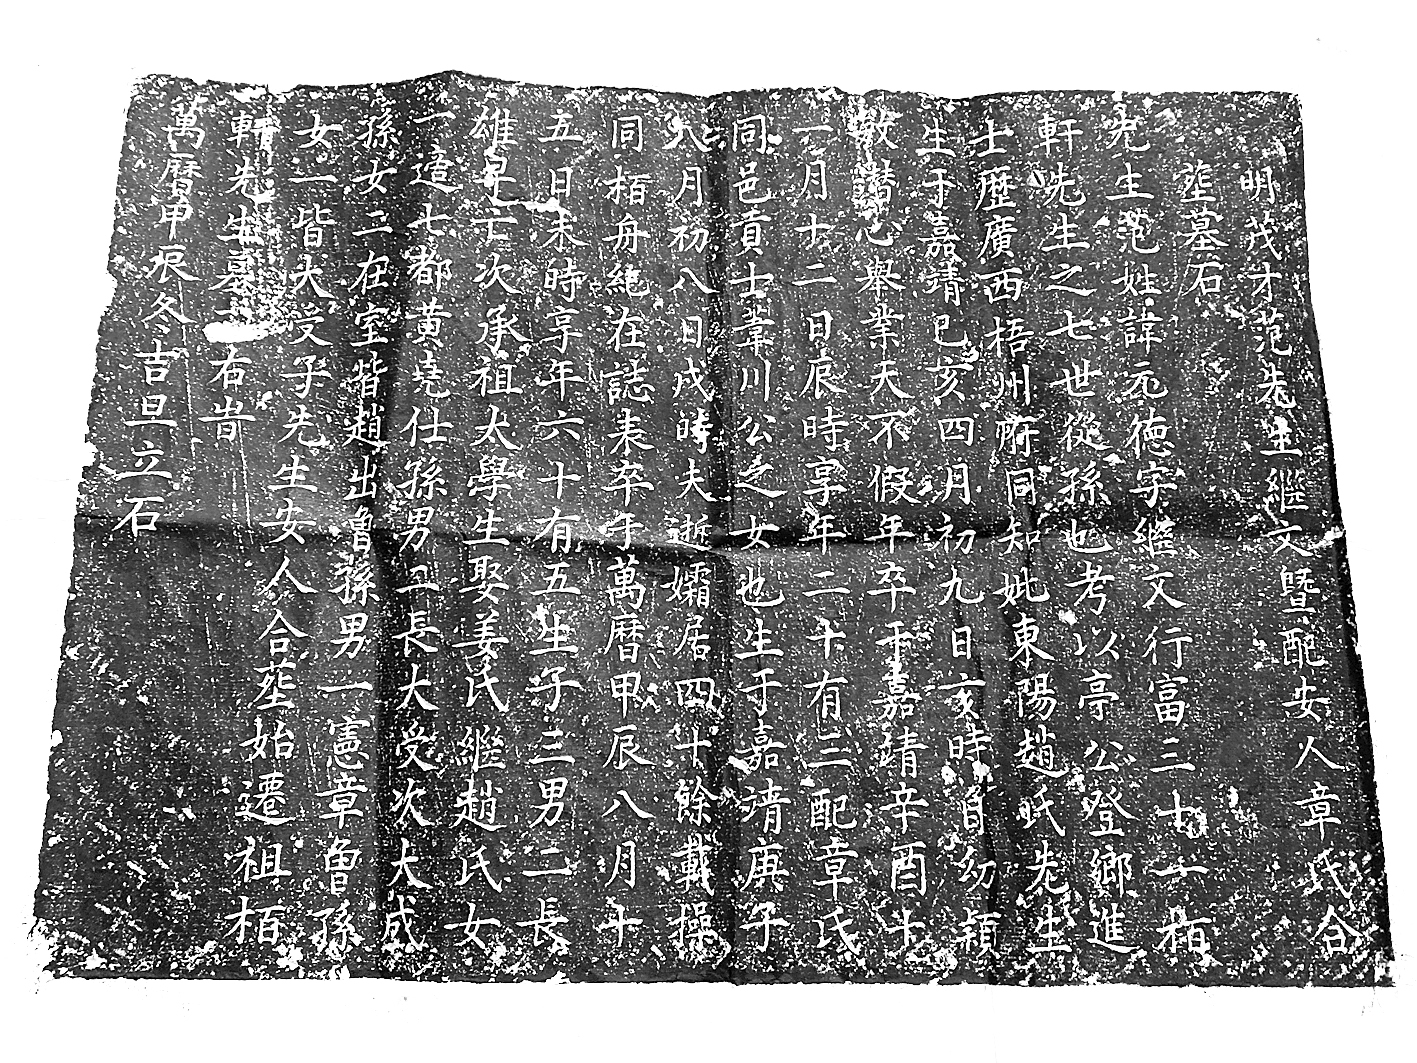 明茂才范先生繼文暨配安人章氏合
塟墓石
先生范姓諱元德字繼文行富三十一栢
軒先生之七世從孫也考以亭公登鄉進
士歷廣西梧州府同知妣東陽趙氏先生
生于嘉靖己亥四月初九日亥時自幼穎
敏潛心舉業天不假年卒于嘉靖辛酉十
一月十二日辰時享年二十有三配章氏
同邑貢士葦川公之女也生于嘉靖庚子
八月初八日戌時夫逝孀居四十餘載操
同栢舟絕在誌表卒于萬曆甲辰八月十
五日未時享年六十有五生子三男二長
雄早亡次承祖太學生娶姜氏繼趙氏女
一適七都黃堯仕孫男二長大受次大成
孫女二在室皆趙出曾孫男一憲章曾孫
女一皆大受子先生安人合塟始遷祖栢
軒先生墓之右旹
萬曆甲辰冬吉旦立石